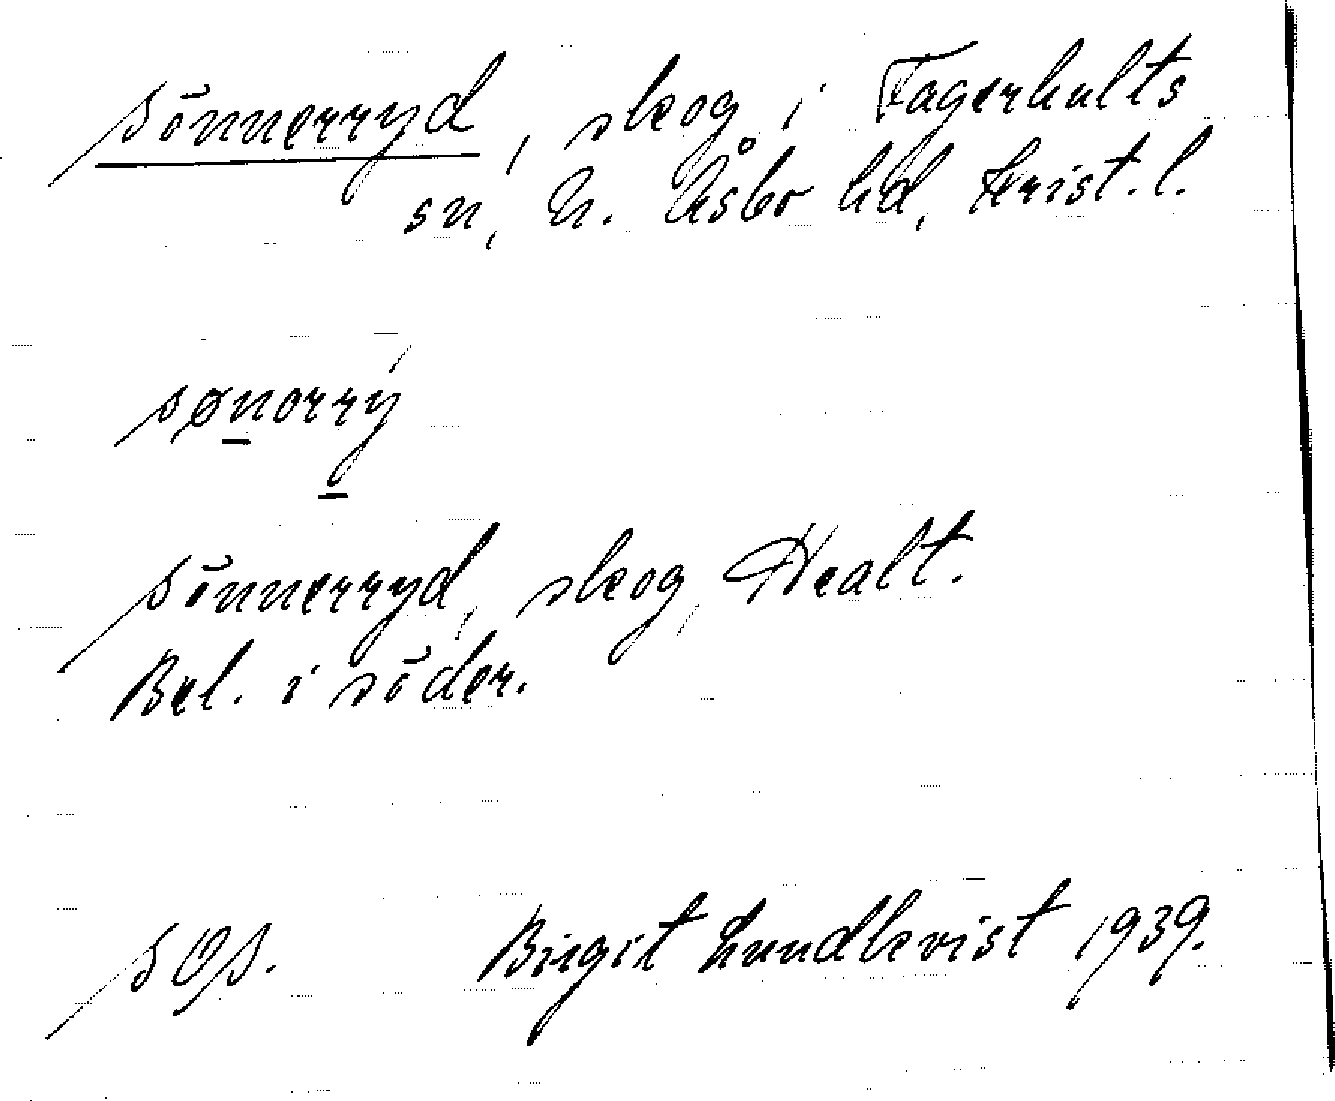 Sönnerryd, skog i Fagerhults
sn, N. Åsbo hd, Krist. l.
sønorrý
Sönnerryd, skog, Healt.
Bel. i söder.
SOS. Birgit Lundkvist 1939.